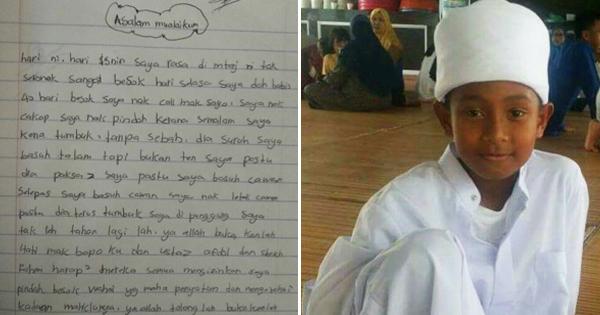 Asalam mualaikum
hari ni, hari isnin saya rasa di mtaj ni tak
seronok sangat besok hari selasa saya dah habis
40 hari besok saya nak call mak saya, saya nak
cakap saya nak pindah kerana semalam saya
kena tumbuk, tanpa sebab, dia suruh saya
basuh talam tapi bukan ten saya pastu
dia paksa2 saya pastu saya basuh cawan
selepas saya basuh cawan saya nak letak cawan
pastu dia terus tumbuk saya di punggung saya
tak lah tahan lagi lah, ya allah buka kanlah
Hati mak bapa ku dan ustaz afdil dan
Fahmi harap2 mereka semua mengizinkan saya
pindah besok wahai yg maha penyayang dan mengetahui
keadaan makluknya, ya allah tolong lah bukakanlah